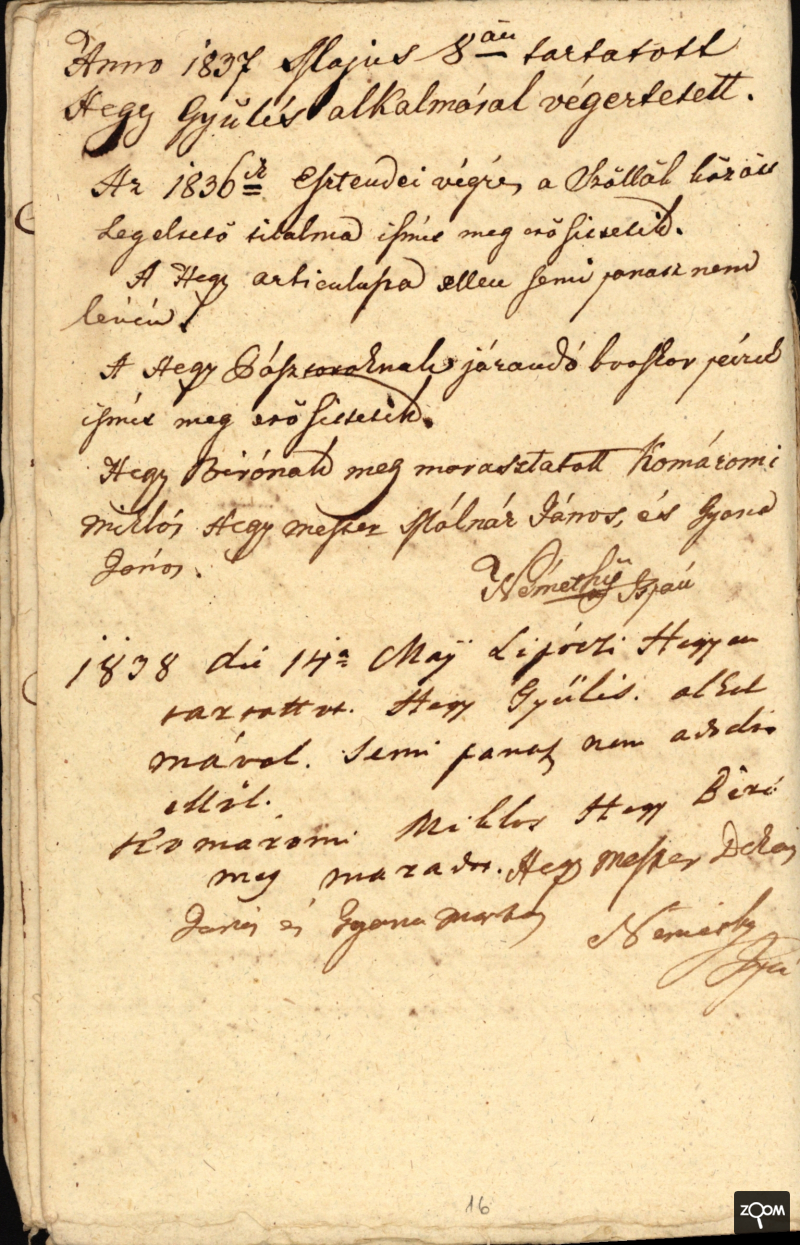 Anno 1837 Majus 8án tartatott
Hegy Gyűlés alkalmával végertetett.
Az 1836ik Esztendei végzés a Szőllők között
Legeltető tilalma ismét meg erősittetik.
A Hegy articulusa ellen semi panasz nem
lévén.
A Hegy Pásztoroknak járandó bocskor pénzek
ismét meg erősittetik.
Hegy Birónak meg marasztatott Komáromi
Miklós Hegy mester Mólnár János, és Gyana
János.
Némethy Ispán
1838 die 14a Maÿ Lipóczi Hegyen
tartottot. Hegy Gyűlés. alkal
mával. Semi panasz nem adódo
ellöl.
Komáromi Miklos Hegy Biró
meg maradot. Hegy Mester
János és Gyana
Nemethy
Ispán
16
ZOOM